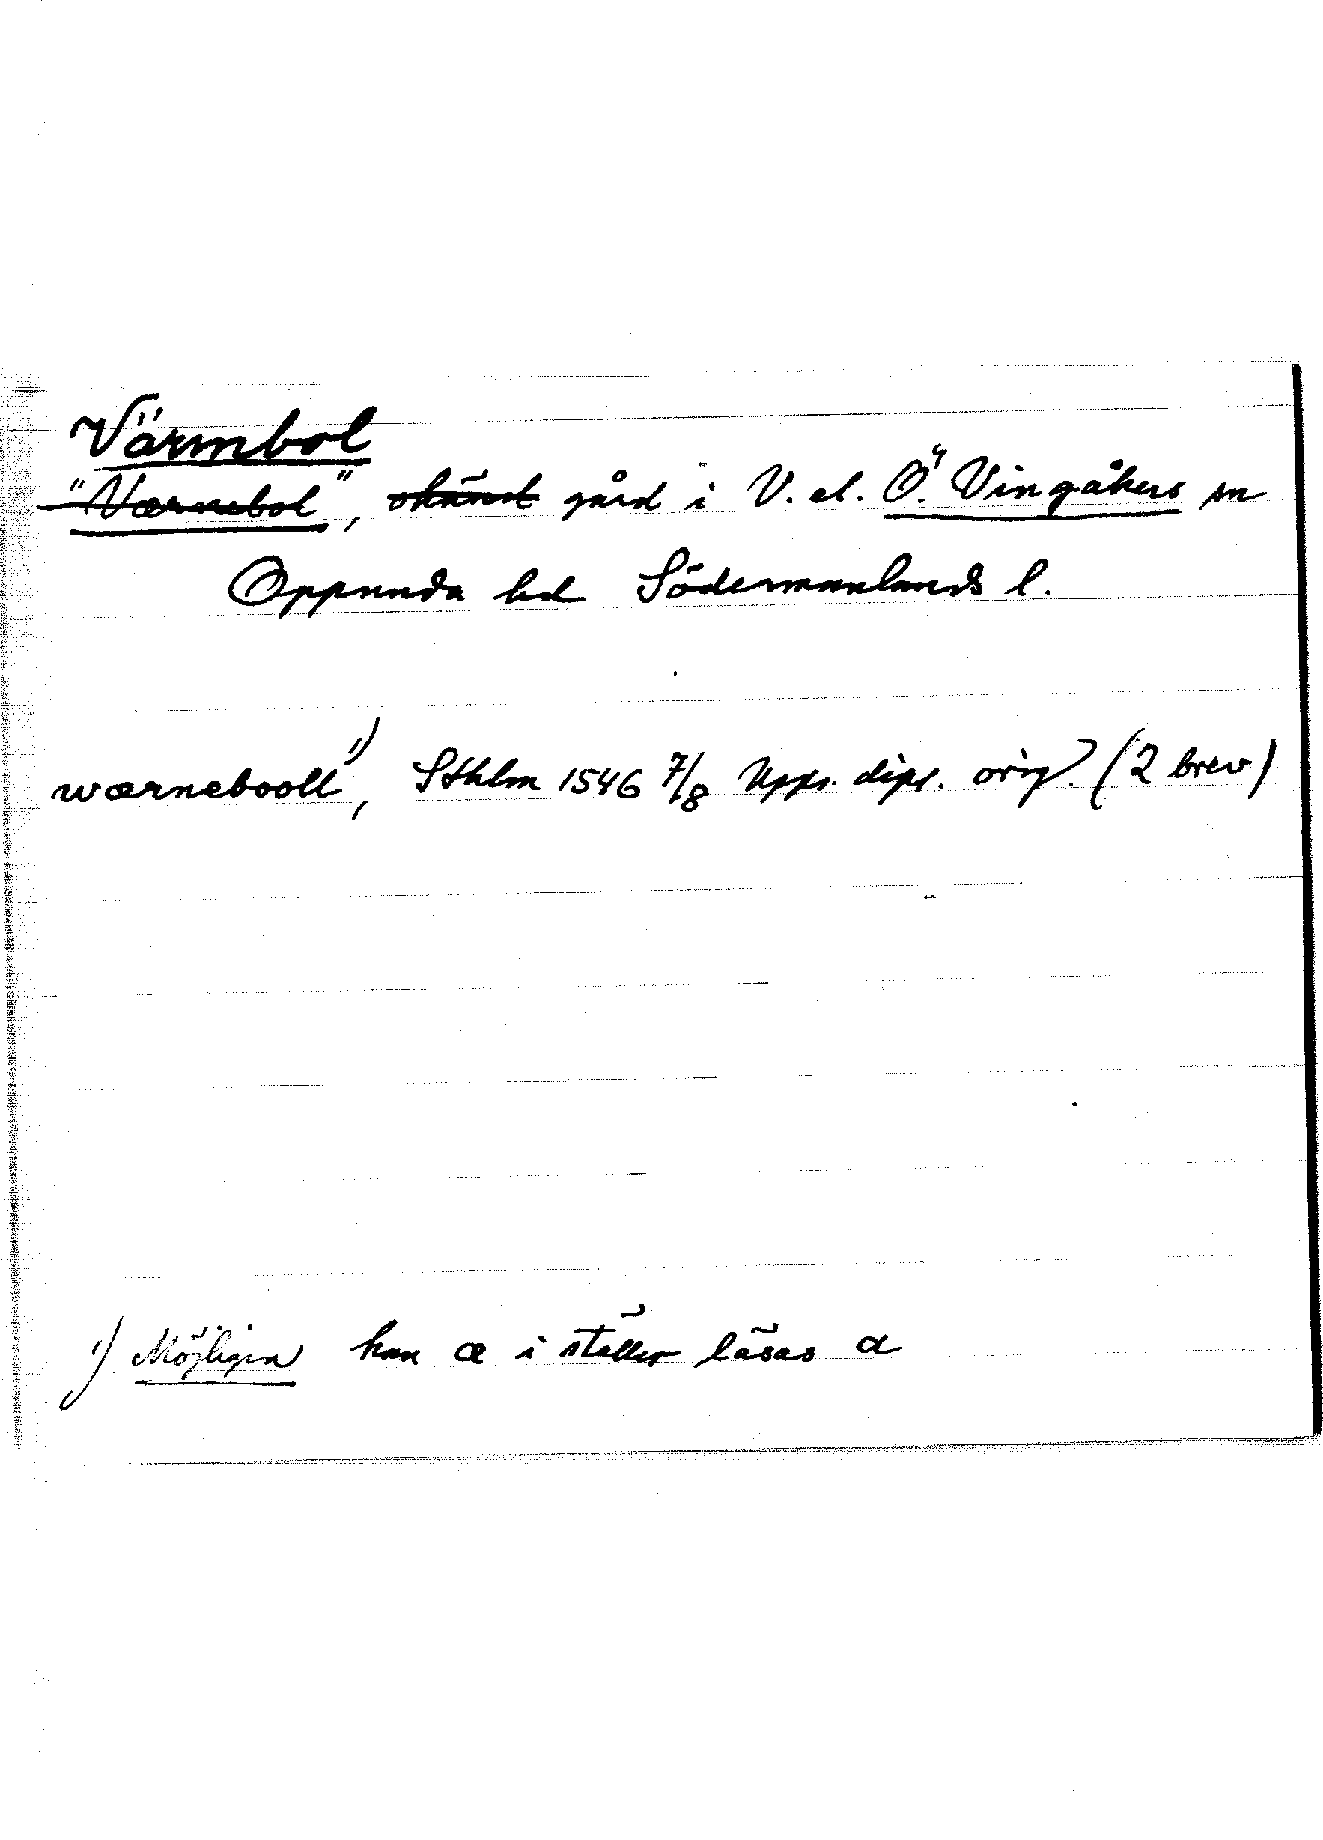 Värmbol
"Værnebol", okänd gård i V. el. Ö. Vingåkers sn
Oppunda hd Södermanlands l.
wærnebooll 1), Sthlm 1546 7/8 Upps. dipl. orig. (2 brev)
1) Möjligen kan æ i stället läsas a